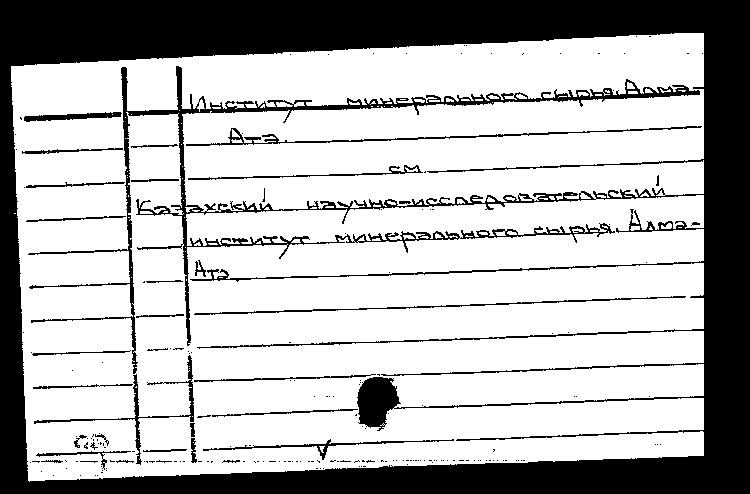 Институт минерального сырья. Алма-
Ата.
см.
Казахский научно-исследовательский
институт минерального сырья. Алма-
Ата